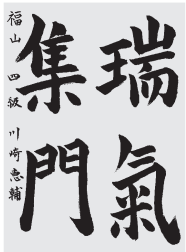 瑞氣
集門
福山 四級 川崎惠輔